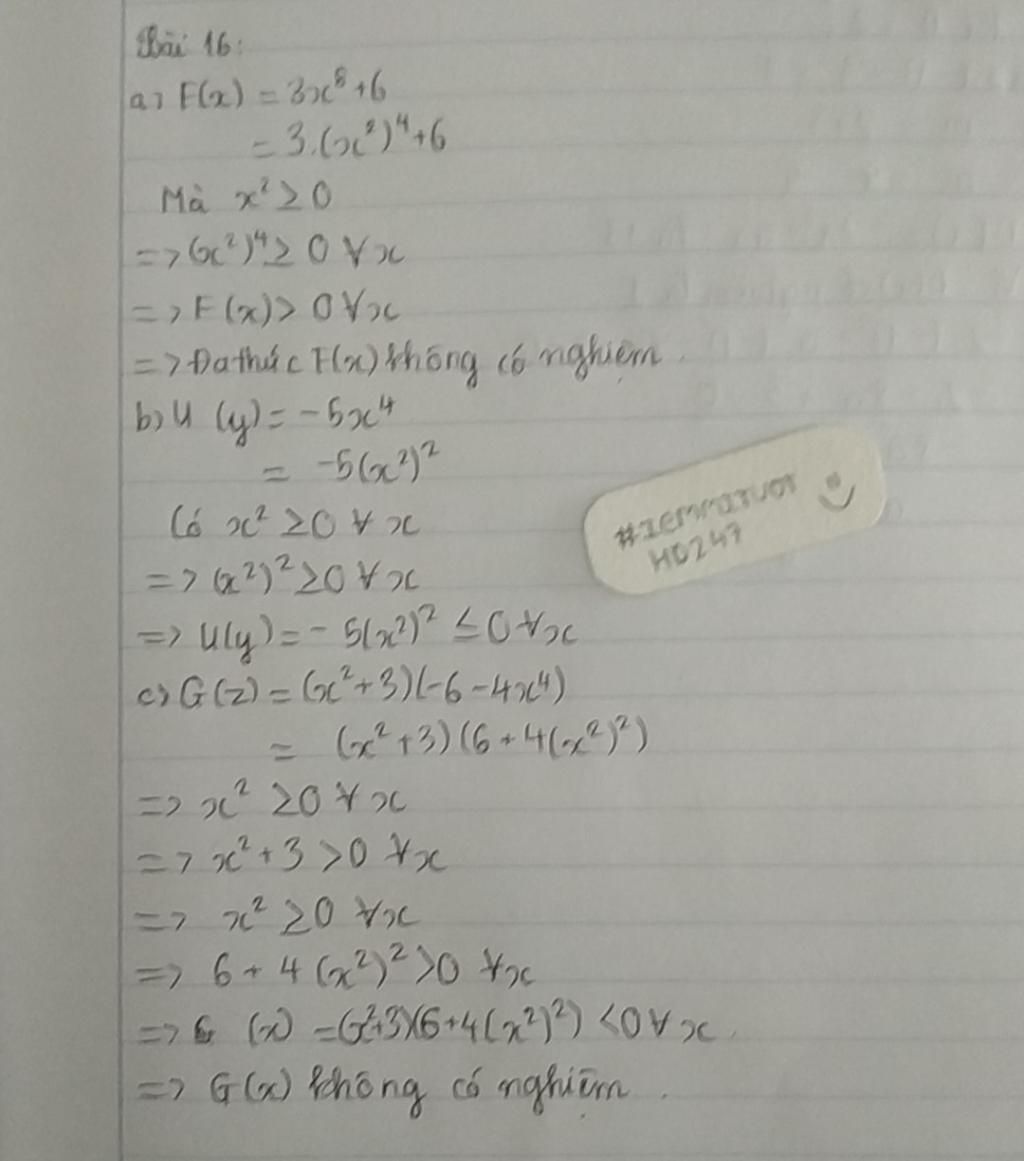 Bài 16:
a) F(x) = 3x⁸+6
= 3.(x²)⁴+6
Mà x² ≥ 0
=> (x²)⁴ ≥ 0 ∀x
=> F(x) > 0 ∀x
=> Đa thức F(x) không có nghiệm.
b) U (y) = -5x⁴
= -5(x²)²
Có x² ≥ 0 ∀ x
=> (x²)² ≥ 0 ∀ x
=> U(y) = - 5(x²)² ≤ 0 ∀x
#IEMMAITUOT
H0247
c) G(z) = (x²+3)(-6-4x⁴)
= (x²+3)(6+4(x²)²)
=> x² ≥ 0 ∀ x
=> x²+3 > 0 ∀x
=> x² ≥ 0 ∀x
=> 6 + 4 (x²)² > 0 ∀x
=> G (x) = (x²+3)(6+4(x²)²) < 0 ∀ x.
=> G(x) không có nghiệm.